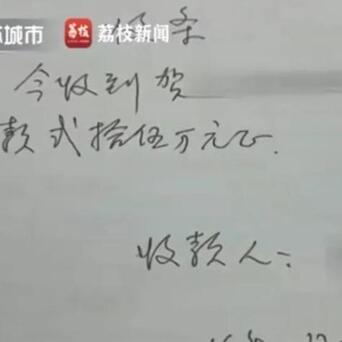 城市 荔枝 荔枝新闻
收条
今收到贺
款式拾伍万元正.
收款人: